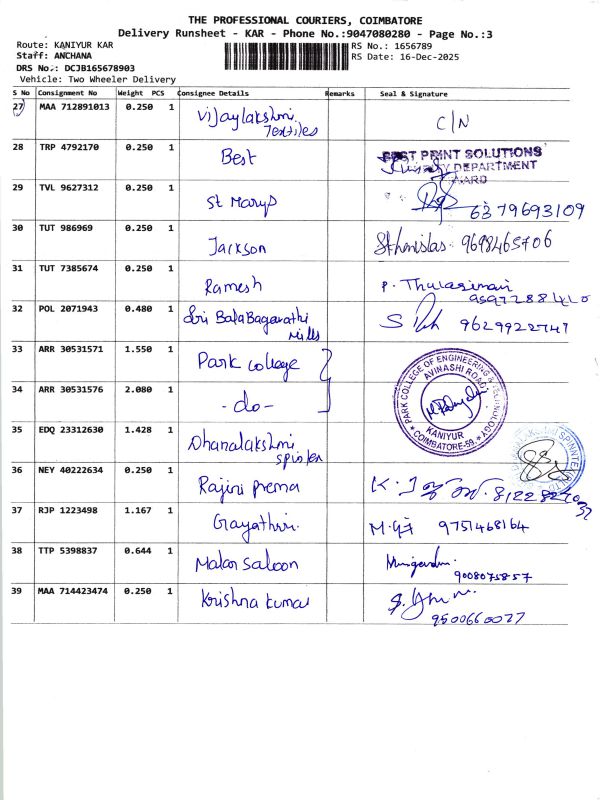 THE PROFESSIONAL COURIERS, COIMBATORE
Delivery Runsheet - KAR - Phone No.:9047080280 - Page No.:3
Route: KANIYUR KAR
RS No.: 1656789
Staff: ANCHANA
RS Date: 16-Dec-2025
DRS No.: DCJB165678903
Vehicle: Two Wheeler Delivery
S No Consignment No Weight PCS Consignee Details Remarks Seal & Signature
27 MAA 712891013 0.250 1 Vijaylakshmi Textiles C/N
28 TRP 4792170 0.250 1 Best BEST PRINT SOLUTIONS
DEPARTMENT
29 TVL 9627312 0.250 1 St Marys 6379693109
30 TUT 986969 0.250 1 Jackson 9698465706
31 TUT 7385674 0.250 1 Ramesh P. Thulasimani
32 POL 2071943 0.480 1 Sri BalaBagavathi Mills 9629922747
33 ARR 30531571 1.550 1 Park College
PARK COLLEGE OF ENGINEERING & TECHNOLOGY
AVINASHI ROAD
KANIYUR
COIMBATORE-59.
34 ARR 30531576 2.080 1 -do-
35 EDQ 23312630 1.428 1 Dhanalakshmi
36 NEY 40222634 0.250 1 Rajini Prema
37 RJP 1223498 1.167 1 Gayathri. 9751468164
38 TTP 5398837 0.644 1 Malar Saloon 9008075857
39 MAA 714423474 0.250 1 Krishna Kumar 9500660027